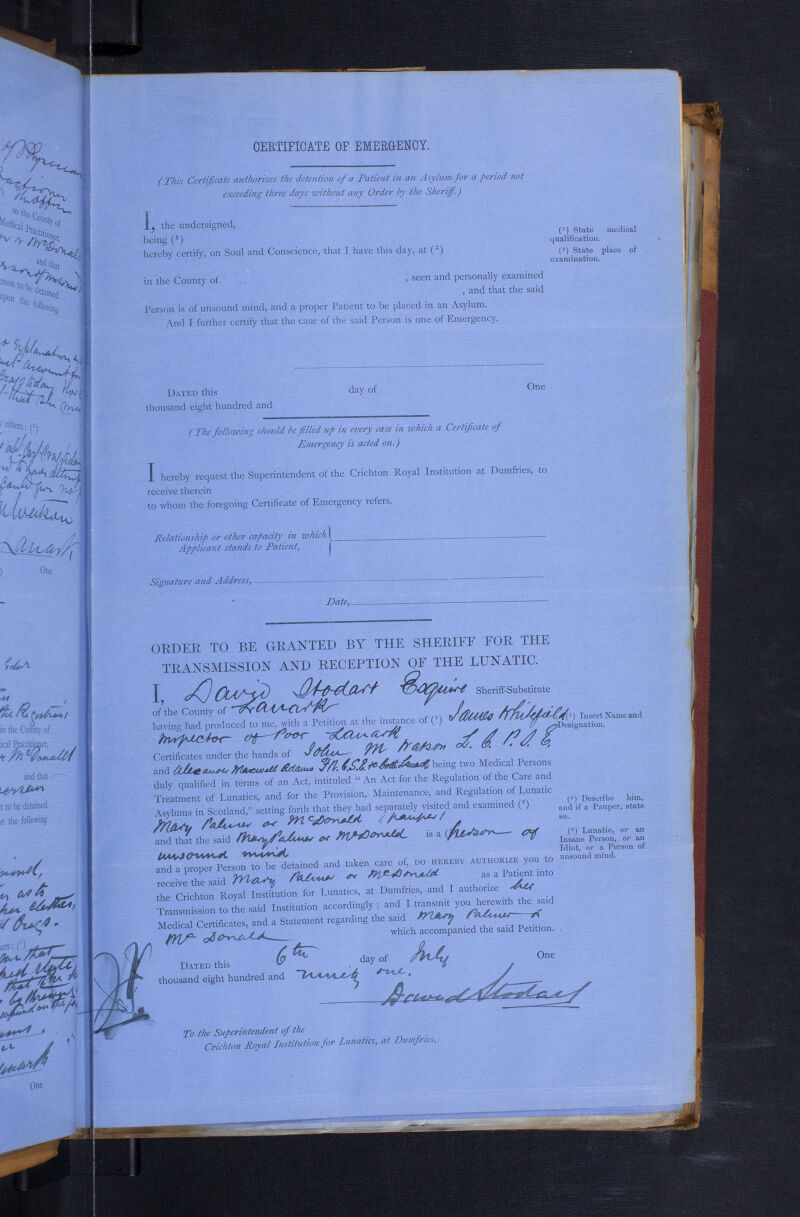 of Physician
in the County of
Medical Practitioner,
or McDonald
and that
person of unsound
person to be detained
upon the following
explanation
account for
that she
others: (2)
Watson
Lanark
One
the Registrar
in the County of
Medical Practitioner,
or McDonald
and that
person
to be detained
the following
as to
her clothes,
that
that she
One
CERTIFICATE OF EMERGENCY.
(This Certificate authorizes the detention of a Patient in an Asylum for a period not
exceeding three days without any Order by the Sheriff.)
I, the undersigned,
being (1)
hereby certify, on Soul and Conscience, that I have this day, at (2)
in the County of , seen and personally examined
, and that the said
Person is of unsound mind, and a proper Patient to be placed in an Asylum.
And I further certify that the case of the said Person is one of Emergency.
(1) State medical
qualification.
(2) State place of
examination.
DATED this day of One
thousand eight hundred and
(The following should be filled up in every case in which a Certificate of
Emergency is acted on.)
I hereby request the Superintendent of the Crichton Royal Institution at Dumfries, to
receive therein
to whom the foregoing Certificate of Emergency refers.
Relationship or other capacity in which
Applicant stands to Patient,
Signature and Address,
Date,
ORDER TO BE GRANTED BY THE SHERIFF FOR THE
TRANSMISSION AND RECEPTION OF THE LUNATIC.
I, David Stodart Esquire Sheriff-Substitute
of the County of Lanark
having had produced to me, with a Petition at the instance of (1) James Whitefield
Inspector of Poor Lanark
Certificates under the hands of John M Watson L.C.P.S.E.
and Alexander Maxwell Adams F.R.C.S.E. &c both Lanark, being two Medical Persons
duly qualified in terms of an Act, intituled "An Act for the Regulation of the Care and
Treatment of Lunatics, and for the Provision, Maintenance, and Regulation of Lunatic
Asylums in Scotland," setting forth that they had separately visited and examined (2)
Mary Palmer or McDonald (pauper)
and that the said Mary Palmer or McDonald is a (3) person of
unsound mind
and a proper Person to be detained and taken care of, DO HEREBY AUTHORIZE you to
receive the said Mary Palmer or McDonald as a Patient into
the Crichton Royal Institution for Lunatics, at Dumfries, and I authorize her
Transmission to the said Institution accordingly; and I transmit you herewith the said
Medical Certificates, and a Statement regarding the said Mary Palmer or
McDonald which accompanied the said Petition.
(1) Insert Name and
Designation.
(2) Describe him,
and if a Pauper, state
so.
(3) Lunatic, or an
Insane Person, or an
Idiot, or a Person of
unsound mind.
DATED this 6th day of July One
thousand eight hundred and ninety one.
David Stodart
To the Superintendent of the
Crichton Royal Institution for Lunatics, at Dumfries.